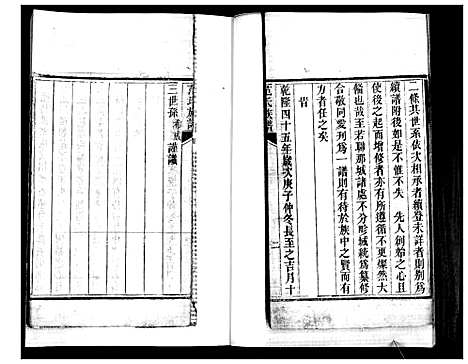 二條其世系依次相承者續登未詳者則別為
續譜附後如是不惟不失　先人創始之心且
使後之起而增修者亦有所遵循不更燦然大
備也哉至若聯城諸處不分畛域統為纂修
合敬同愛列為一譜則有待於族中之賢而有
力者任之矣
旹
乾隆四十五年歲次庚子仲冬長至之吉月十
范氏族譜
三世孫
謹識